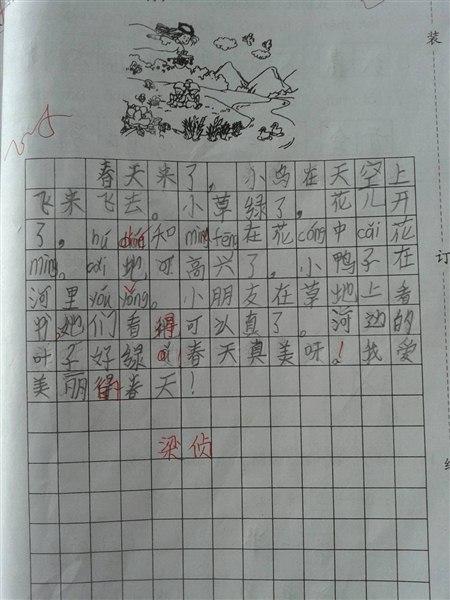 春天来了，小鸟在天空上
飞来飞去。小草绿了，花儿开
了，hú dié和mì fēng在花cóng中cǎi花
mì。它们可高兴了。小鸭子在
河里yóu yǒng。小朋友在草地上看
书，她们看得可认真了。河边的
叶子好绿呀！春天真美呀！我爱
美丽得春天！
梁侦
装
订